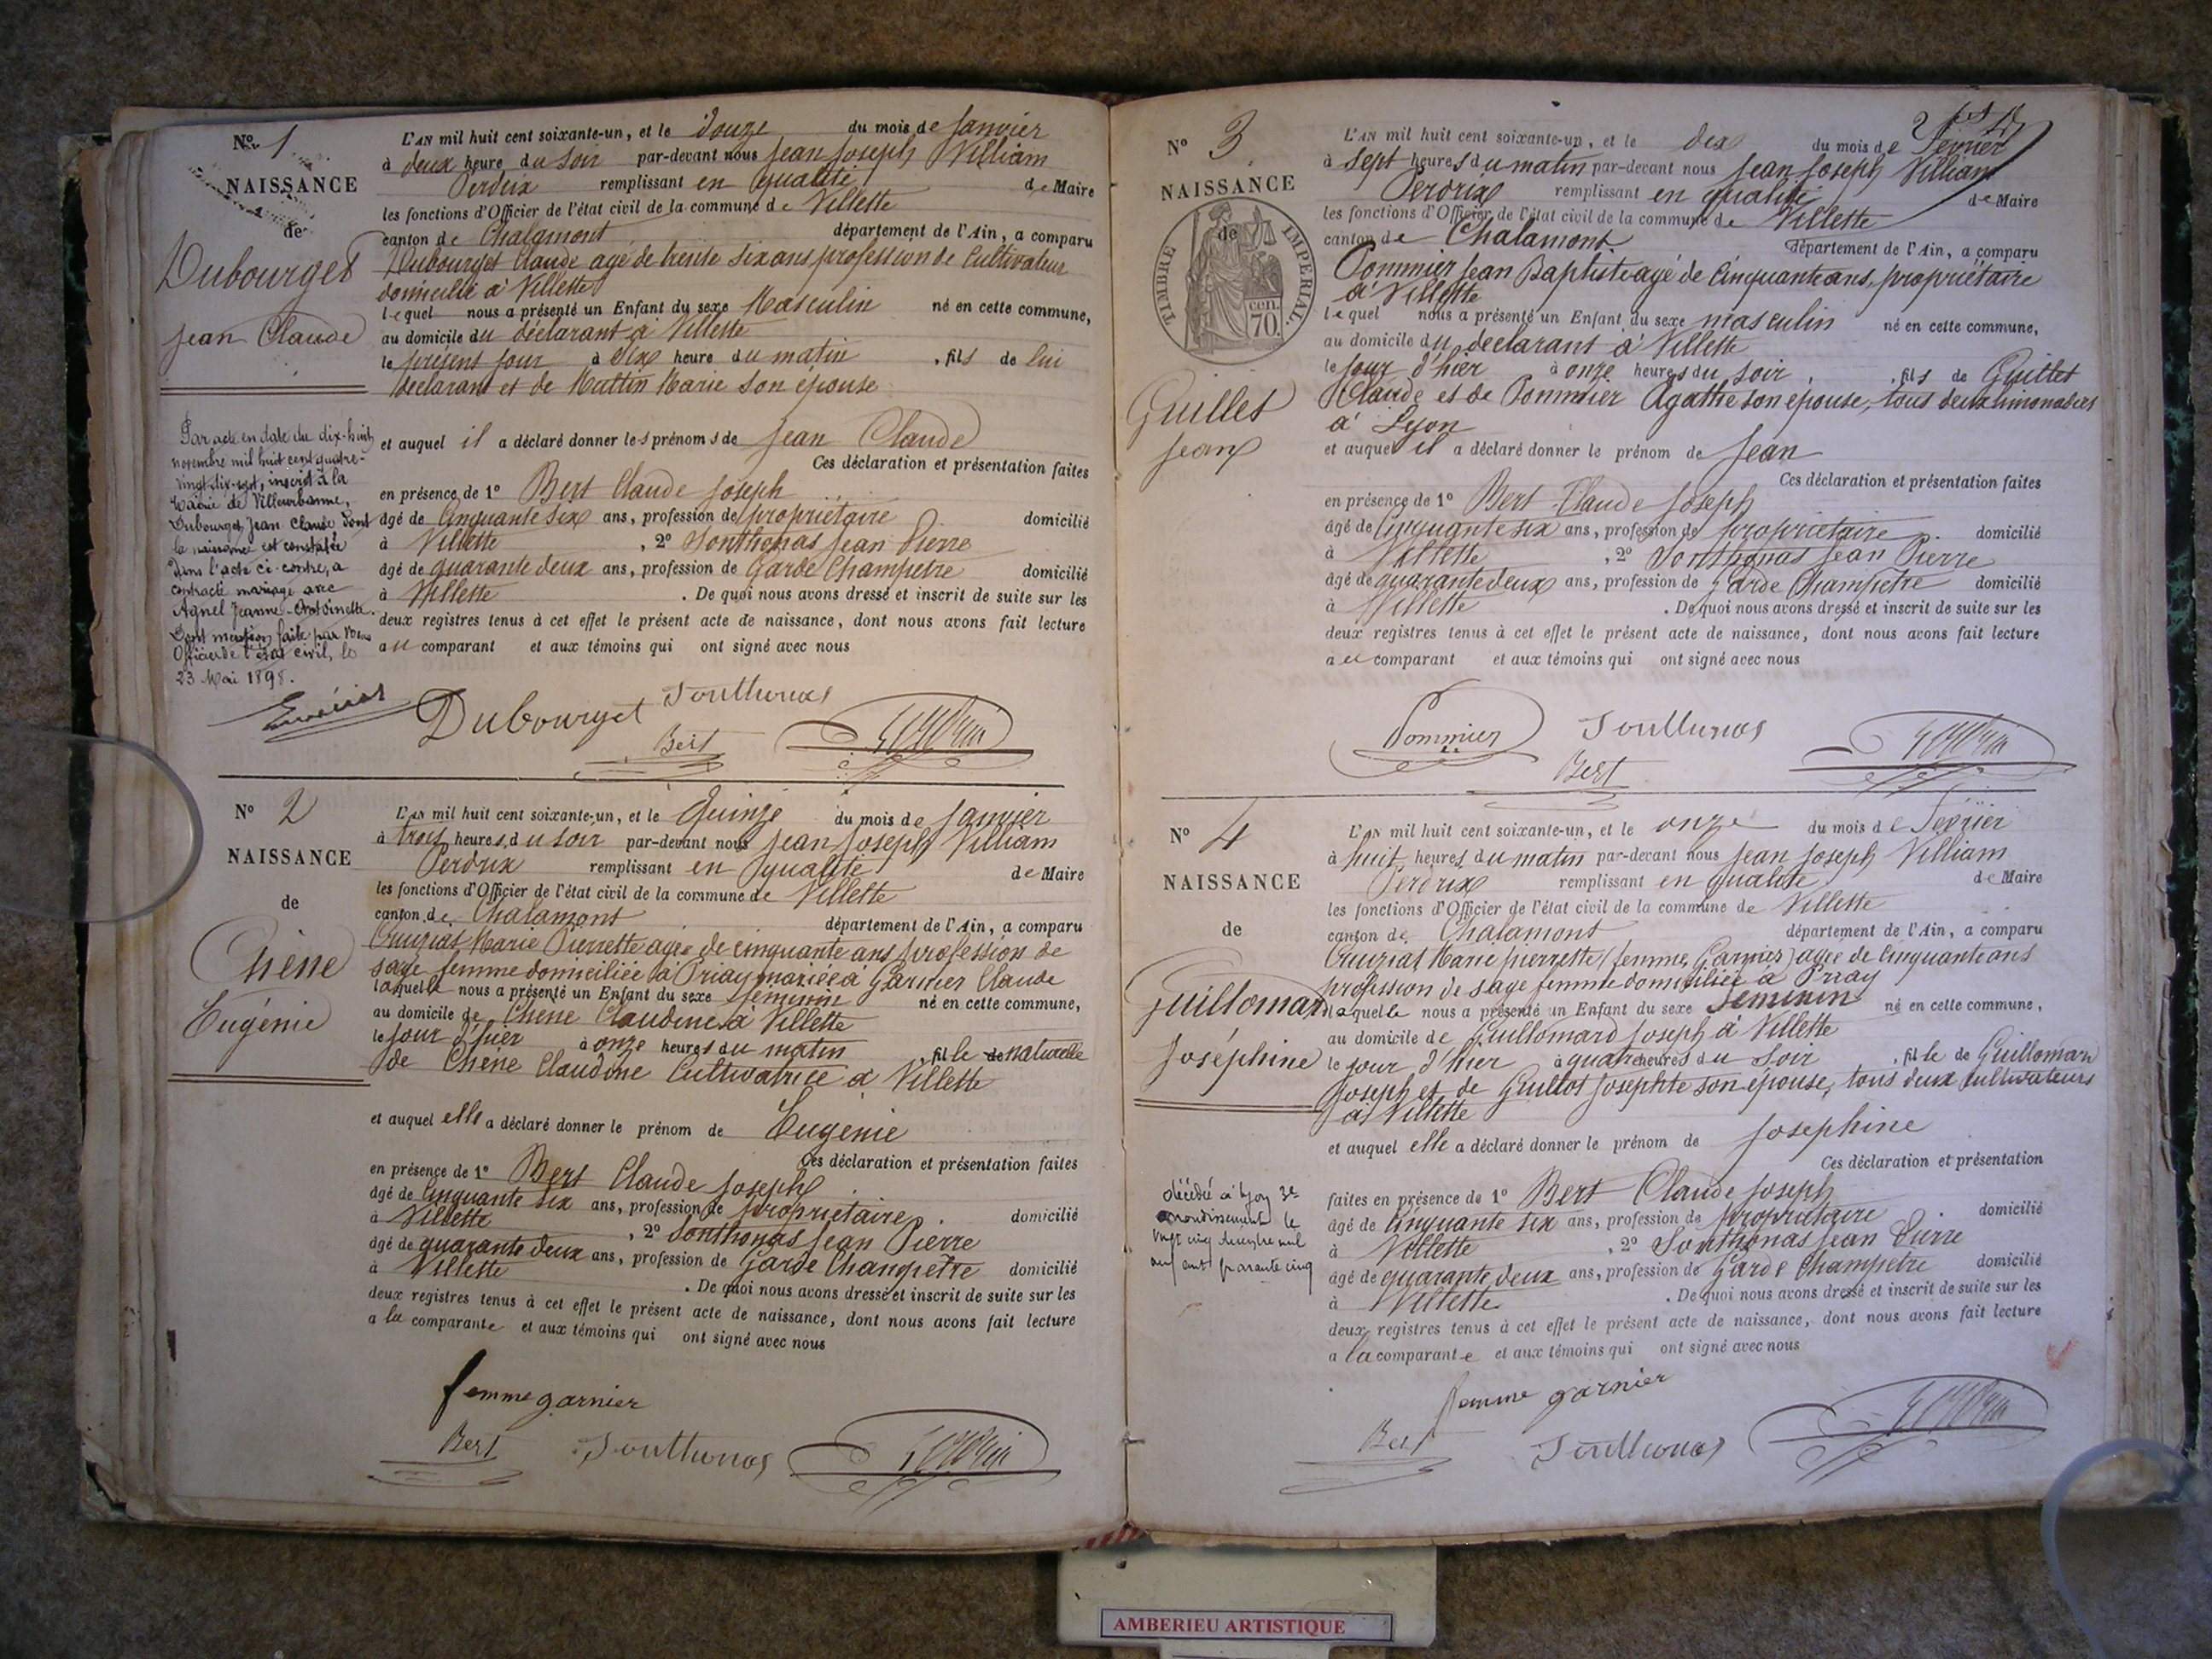 Nº 1
NAISSANCE
de
Dubourget
Jean Claude
L'AN mil huit cent soixante-un, et le douze du mois de Janvier
à deux heure du soir par-devant nous Jean Joseph Villiam
Perdrix remplissant en qualité de Maire
les fonctions d'Officier de l'état civil de la commune de Villette
canton de Chalamont département de l'Ain, a comparu
Dubourget Claude agé de trente six ans profession de Cultivateur
domicilié à Villette
lequel nous a présenté un Enfant du sexe Masculin né en cette commune,
au domicile du déclarant à Villette
le présent jour à dix heure du matin , fils de lui
déclarant et de Mattin Marie son épouse
et auquel il a déclaré donner les prénoms de Jean Claude
Ces déclaration et présentation faites
en présence de 1º Bert Claude Joseph
âgé de Cinquante six ans, profession de propriétaire domicilié
à Villette , 2º Sonthonas Jean Pierre
âgé de quarante deux ans, profession de Garde Champetre domicilié
à Villette . De quoi nous avons dressé et inscrit de suite sur les
deux registres tenus à cet effet le présent acte de naissance, dont nous avons fait lecture
au comparant et aux témoins qui ont signé avec nous
Par acte en date du dix-huit
novembre mil huit cent quatre-
vingt-dix-sept, inscrit à la
Mairie de Villeurbanne,
Dubourget Jean Claude dont
la naissance est constatée
dans l'acte ci-contre, a
contracté mariage avec
Agnel Jeanne-Antoinette.
Dont mention faite par Nous
Officier de l'état civil, le
23 Mai 1898.
Dubourget Sonthonas
Bert
Nº 2
NAISSANCE
de
Chêne
Eugénie
L'AN mil huit cent soixante-un, et le Quinze du mois de Janvier
à trois heures du soir par-devant nous Jean Joseph Villiam
Perdrix remplissant en qualité de Maire
les fonctions d'Officier de l'état civil de la commune de Villette
canton de Chalamont département de l'Ain, a comparu
Cruziat Marie Pierrette agée de cinquante ans profession de
sage femme domiciliée à Priay mariée à Garnier Claude
laquelle nous a présenté un Enfant du sexe féminin né en cette commune,
au domicile de Chêne Claudine à Villette
le jour d'hier à onze heures du matin , fille de naturelle
de Chêne Claudine Cultivatrice à Villette
et auquel elle a déclaré donner le prénom de Eugénie
Ces déclaration et présentation faites
en présence de 1º Bert Claude Joseph
âgé de Cinquante six ans, profession de propriétaire domicilié
à Villette , 2º Sonthonas Jean Pierre
âgé de quarante deux ans, profession de Garde Champetre domicilié
à Villette . De quoi nous avons dressé et inscrit de suite sur les
deux registres tenus à cet effet le présent acte de naissance, dont nous avons fait lecture
a la comparante et aux témoins qui ont signé avec nous
femme garnier
Bert Sonthonas
Nº 3
NAISSANCE
de
TIMBRE IMPERIAL.
cen.
70.
Guillet
Jean
L'AN mil huit cent soixante-un, et le dix du mois de Février
à sept heures du matin par-devant nous Jean Joseph Villiam
Perdrix remplissant en qualité de Maire
les fonctions d'Officier de l'état civil de la commune de Villette
canton de Chalamont département de l'Ain, a comparu
Pommier Jean Baptiste agé de Cinquante ans, propriétaire
à Villette
lequel nous a présenté un Enfant du sexe masculin né en cette commune,
au domicile du déclarant à Villette
le jour d'hier à onze heures du soir , fils de Guillet
Claude et de Pommier Agathe son épouse, tous deux limonadiers
à Lyon
et auquel il a déclaré donner le prénom de Jean
Ces déclaration et présentation faites
en présence de 1º Bert Claude Joseph
âgé de Cinquante six ans, profession de propriétaire domicilié
à Villette , 2º Sonthonas Jean Pierre
âgé de quarante deux ans, profession de Garde Champetre domicilié
à Villette . De quoi nous avons dressé et inscrit de suite sur les
deux registres tenus à cet effet le présent acte de naissance, dont nous avons fait lecture
au comparant et aux témoins qui ont signé avec nous
Pommier Sonthonas
Bert
Nº 4
NAISSANCE
de
Guillomard
Joséphine
L'AN mil huit cent soixante-un, et le onze du mois de Février
à huit heures du matin par-devant nous Jean Joseph Villiam
Perdrix remplissant en qualité de Maire
les fonctions d'Officier de l'état civil de la commune de Villette
canton de Chalamont département de l'Ain, a comparu
Cruziat Marie Pierrette (femme Garnier) agée de Cinquante ans
profession de sage femme domiciliée à Priay
laquelle nous a présenté un Enfant du sexe Féminin né en cette commune,
au domicile de Guillomard Joseph à Villette
le jour d'hier à quatre heures du soir , fille de Guillomard
Joseph et de Guillot Josephte son épouse, tous deux cultivateurs
à Villette
et auquel elle a déclaré donner le prénom de Josephine
Ces déclaration et présentation
faites en présence de 1º Bert Claude Joseph
âgé de Cinquante six ans, profession de propriétaire domicilié
à Villette , 2º Sonthonas Jean Pierre
âgé de quarante deux ans, profession de Garde Champetre domicilié
à Villette . De quoi nous avons dressé et inscrit de suite sur les
deux registres tenus à cet effet le présent acte de naissance, dont nous avons fait lecture
a la comparante et aux témoins qui ont signé avec nous
décédée à Lyon 3e
arrondissement le
vingt cinq décembre mil
neuf cent quarante cinq
femme garnier
Bert Sonthonas
AMBERIEU ARTISTIQUE